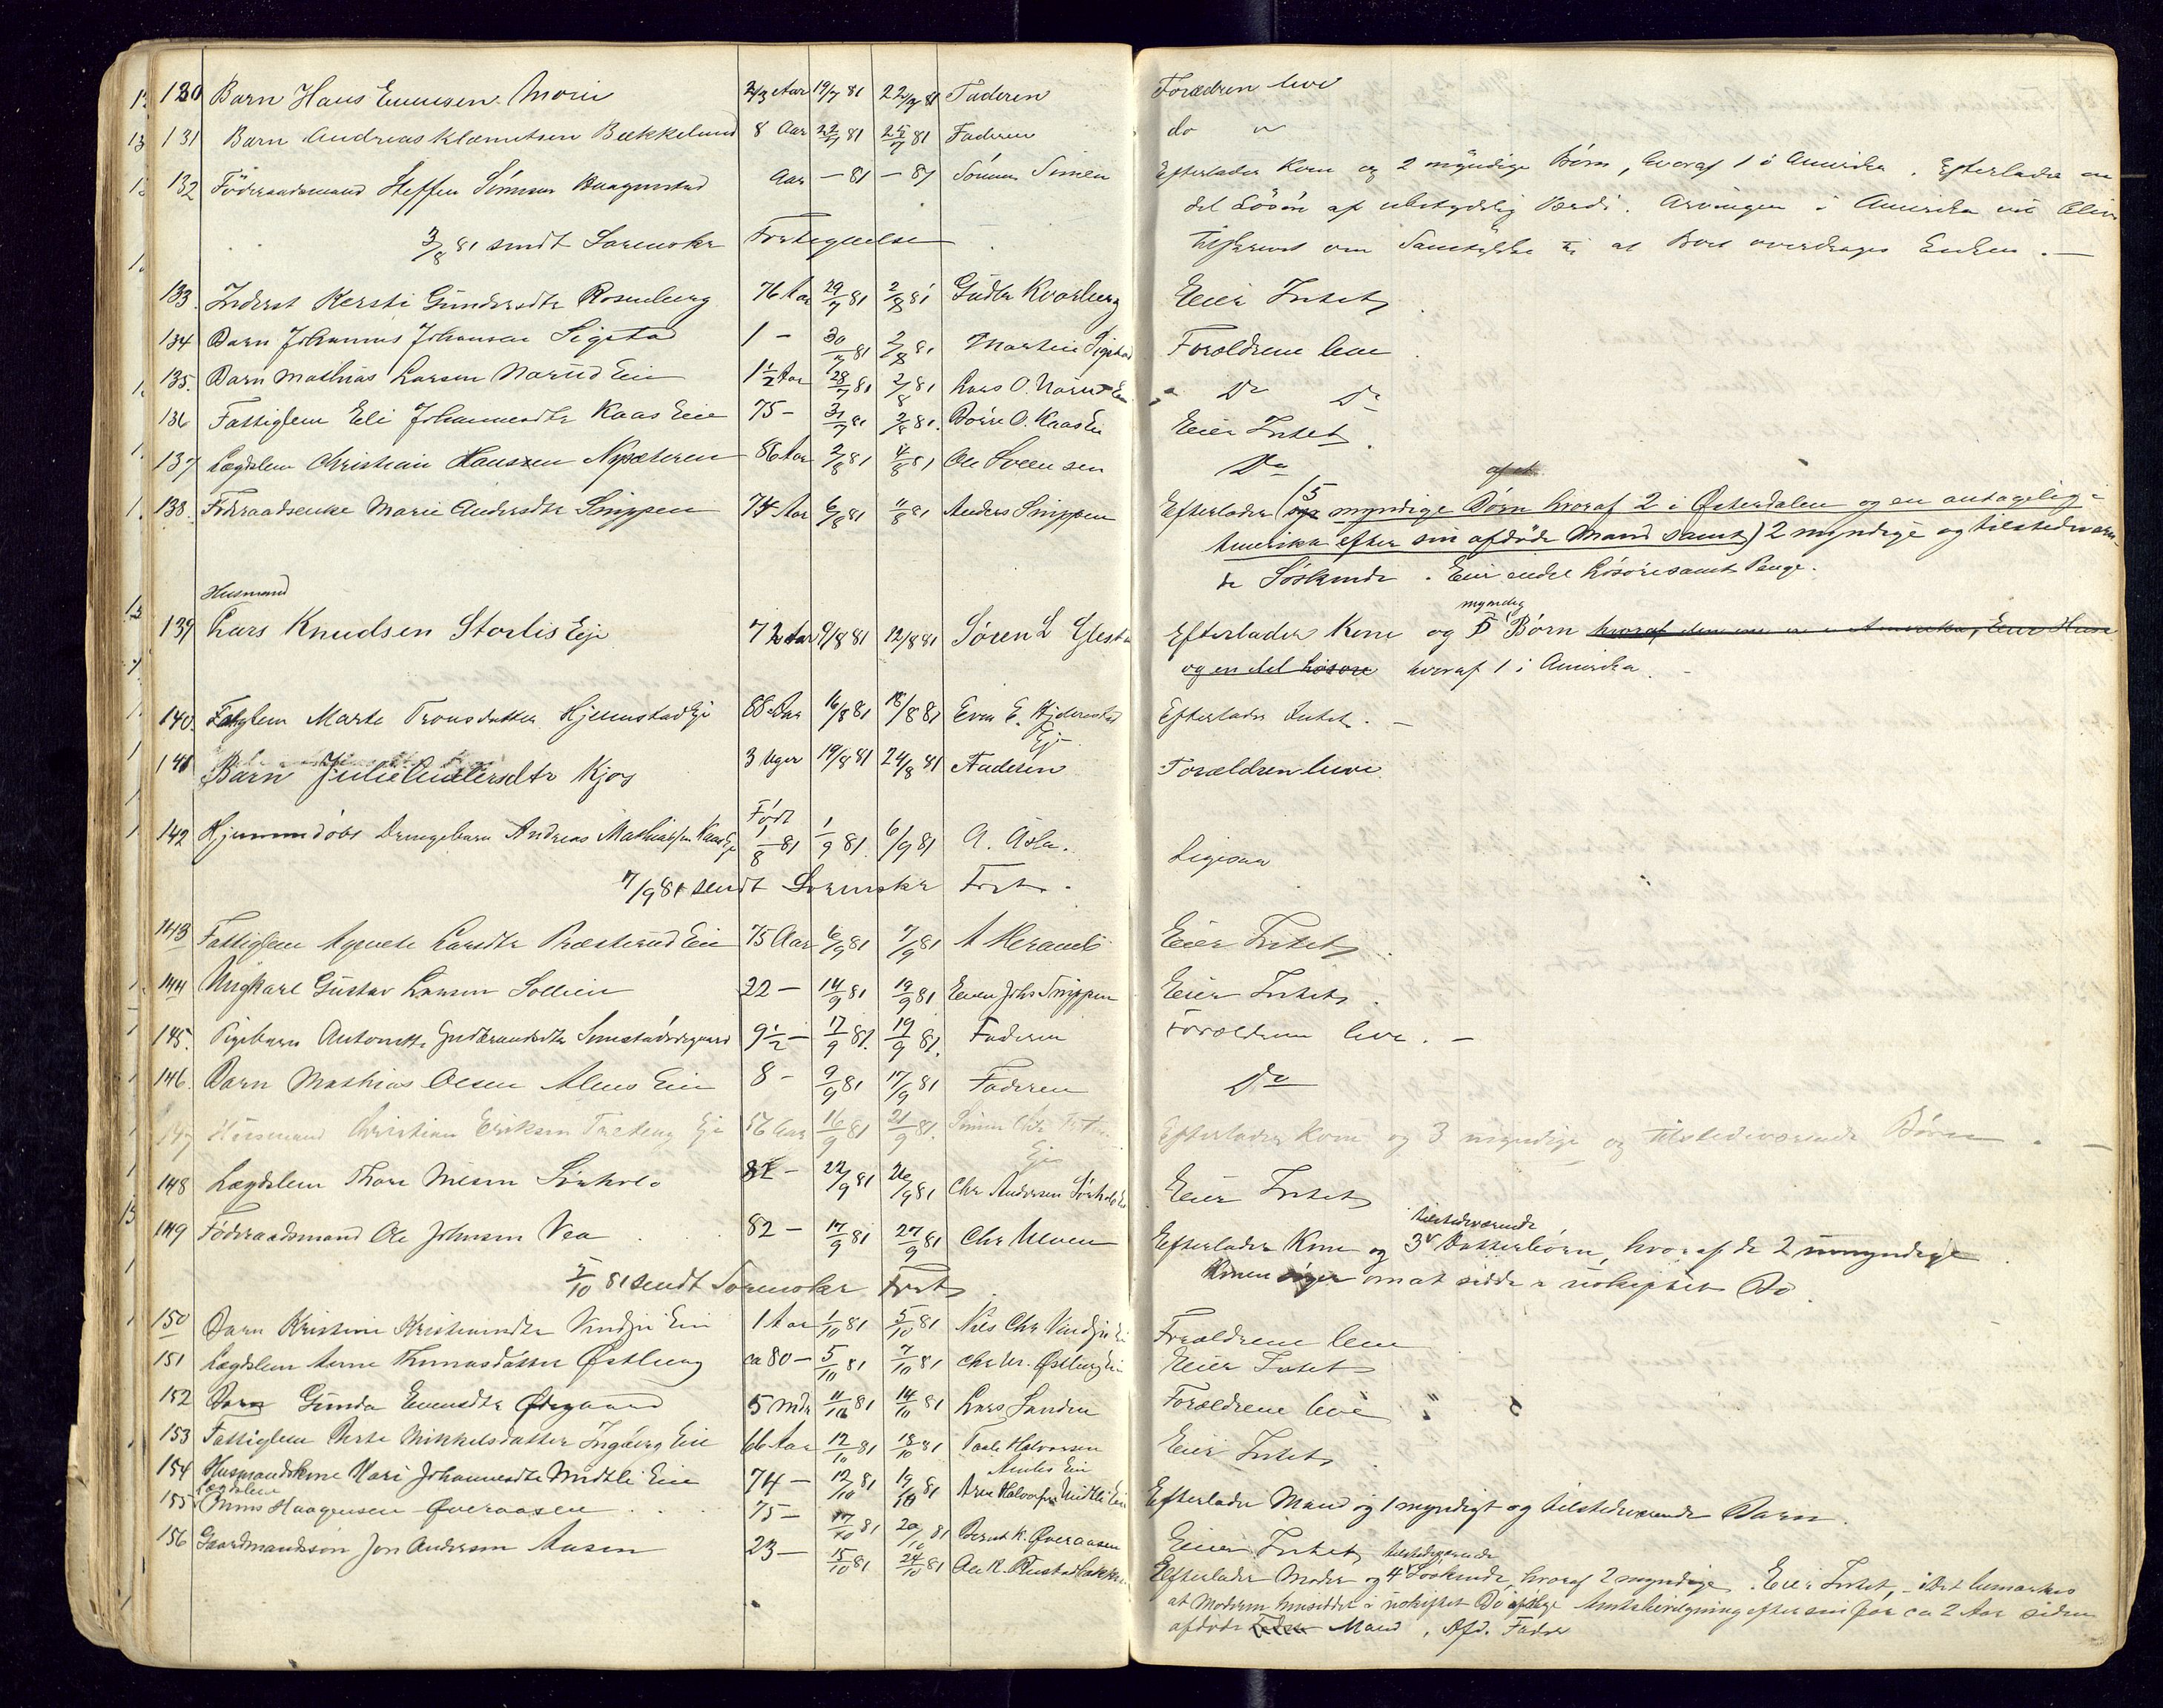 130 Barn Hans Evensen Morin 2/3 Aar 19/7 81 22/7 81 Faderen Forældren leve
131 Barn Andreas Klemetsen Bækkelund 8 Aar 22/7 81 25/7 81 Faderen do "
132 Föderaadsmand Steffen Simensen Aar – 81 – 81 Sönnen Simen Efterlader Kone og 2 myndige Börn, hvoraf 1 i Amerika. Efterlader en
del Lösöre af ubetydelig Værdi. Arvingen i Amerika vil blive
tilskrevet om Samtykke til at Boet overdrages Enken. —
3/8 81 sendt Sorenskr Fortegnelse
133. Inderst Kersti Gundersdtr Rosenberg 76 Aar 29/7 81 2/8 81 Gudbr Kvarberg Eier Intet
134 Barn Johannes Johansen Sigstad 1 – 30/7 81 2/8 81 Martin Sigstad Forældrene leve
135. Barn Mathias Larsen Narud Eie 1½ Aar 28/7 81 2/8 81 Lars O. Narud Eie Do Do
136 Fattiglem Eli Johannesdtr Kaas Eie 75 – 31/7 81 2/8 81. O. Kaas Eie Eier Intet
137 Lægdslem Christian Hansen 86 Aar 2/8 81 4/8 81 Ole Svensen Do
138. Föderaadsenke Marie Andersdtr Snippen 74 Aar 6/8 81 11/8 81 Anders Snippen Efterlader (5 myndige Börn hvoraf 2 i Østerdalen og en antagelig i
Amerika efter sin afdöde Mand samt) 2 myndige og tilstedværen-
de Söskende. Eier endel Lösöre samt Penge.
Husmand
139 Lars Knudsen Storlis Eje 72 Aar 9/8 81 12/8 81 Sören L Efterlader Kone og 5 myndig Börn hvoraf den ene er i Amerika, Eier Huse
og en del Lösöre hvoraf 1 i Amerika. –
140. Fatglem Marte Tronsdatter Hjelmstad Eje 88 Aar 16/8 81 18/8 81 Even E. Hjelmstad Eje Efterlader Intet. –
141 Barn Julie Andersdtr Kjos 3 Uger 19/8 81 24/8 81 Faderen Forældren leve
142 Hjemmedöbt Drengebarn Andreas Mathiassen Kaas Eje Födt 1/8 81 1/9 81 6/9 81 A. Asla. Ligesaa
7/9 81 sendt Sorenskr Fort.
143 Fattiglem Agnete Larsdtr Præsterud Eie 75 Aar 6/9 81 7/9 81 A Eier Intet
144 Ungkarl Gustav Larsen Sollien 22 – 14/9 81 19/9 81 Even Johs Snippen Eier Intet.
145. Pigebarn Antonette Gudbrandsdtr 9½ – 17/9 81. 19/9 81. Faderen Forældrene leve. –
146. Barn Mathias Olsen Alms Eie 8 – 9/9 81 17/9 81 Faderen Do
147 Husmand Christian Eriksen Eje 56 Aar 16/9 81 21/9 81. Simen Eje Efterlader Kone og 3 myndige og tilstedeværende Börn. –
148 Lægdslem Thore Nilsen 82 – 22/9 81 26/9 81 Chr Andersen Eier Intet
149 Föderaadsmand Ole Johnsen Vea 82 – 17/9 81 27/9 81 Chr Ulven Efterlader Kone og 3 tilstedeværende Datterbörn, hvoraf de 2 umyndige
Konen siger om at sidde i uskiftet Bo.
5/10 81 sendt Sorenskr Fort
150 Barn Kristine Kristiansdtr Eie 1 Aar 1/10 81 5/10 81 Nils Chr Forældrene leve
151 Lægdslem Anne Thomasdatter Østberg ca 80 – 5/10 81 7/10 81 Chr Østberg Eie Eier Intet
152 Barn Gunda Evensdtr Ødegaard 5 Mdr 11/10 81 14/10 81 Lars Sanden Forældrene leve
153 Fattiglem Berte Mikkelsdatter Ingberg Eie 66 Aar 12/10 81 18/10 81 Halvorsen Eie Eier Intet
154 Husmandskone Mari Johannesdtr Midtli Eie 74 – 12/10 81 19/10 81 Arne Halvorsen Midtli Eie Efterlader Mand og 1 myndigt og tilstedeværende Barn.
155 Lægdslem Haagensen Øveraasen 75 – 17/10 81 20/10 81 Bernt K. Øveraasen Eier Intet
156 Gaardmandssön Jon Andersen Aasen 23 – 15/10 81 24/10 81 Ole R. Efterlader Moder og 4 tilstedeværende Söskende, hvoraf 2 myndige. Eier Intet, – idet bemærkes
at Moderen hensidder i uskiftet Bo ifölge Amtsbevilgning efter sin for ca 2 Aar siden
afdöde Mand, Afd. Fader